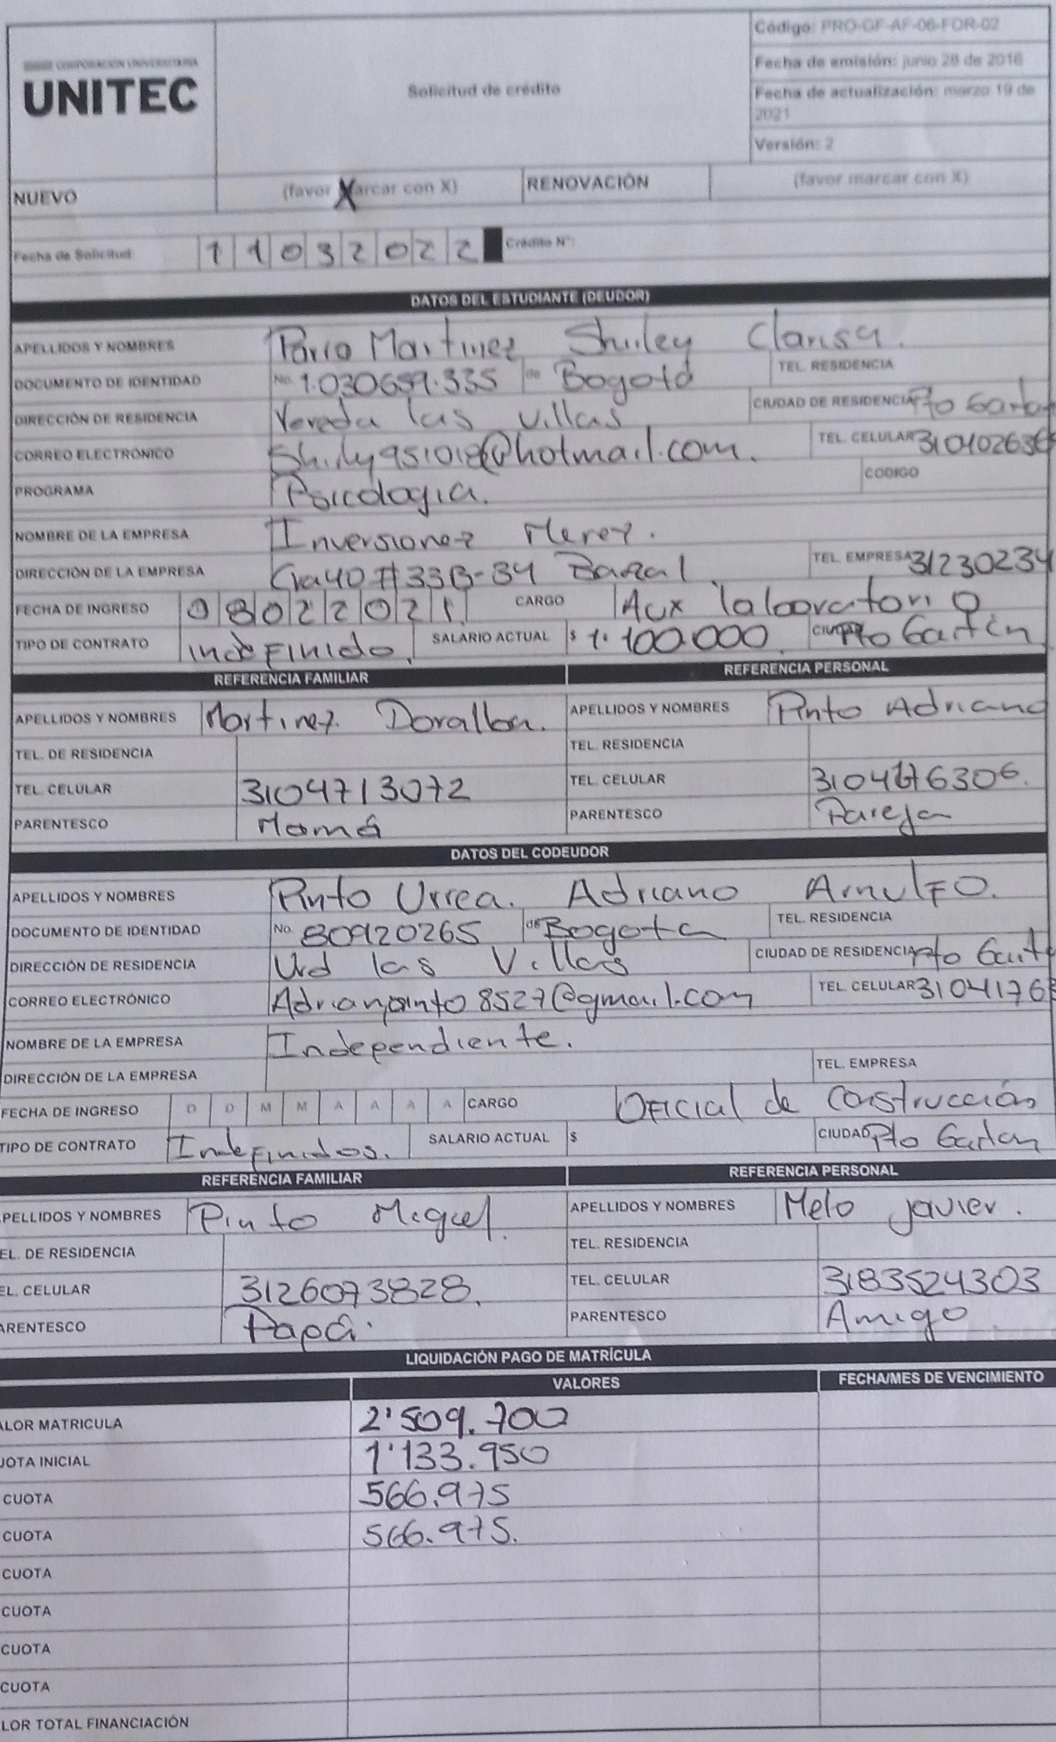 CORPORACIÓN UNIVERSITARIA
UNITEC
Solicitud de crédito
Código: PRO-GF-AF-06-FOR-02
Fecha de emisión: junio 28 de 2016
Fecha de actualización: marzo 19 de 2021
Versión: 2
NUEVO (favor marcar con X) X RENOVACIÓN (favor marcar con X)
Fecha de Solicitud: 1 1 0 3 2 0 2 2 Crédito N°:
DATOS DEL ESTUDIANTE (DEUDOR)
APELLIDOS Y NOMBRES Martinez Shirley Clarisa.
DOCUMENTO DE IDENTIDAD No. 1.030659.335 de Bogotá TEL. RESIDENCIA
DIRECCIÓN DE RESIDENCIA Vereda las Villas CIUDAD DE RESIDENCIA Pto Gaitan
CORREO ELECTRÓNICO @hotmail.com. TEL. CELULAR 310402636
PROGRAMA Psicologia. CODIGO
NOMBRE DE LA EMPRESA Inversiones Merez.
DIRECCIÓN DE LA EMPRESA Cra 40 # 33B-34 Barzal. TEL. EMPRESA 31230234
FECHA DE INGRESO 0 8 0 2 2 0 2 1 CARGO Aux laboratorio
TIPO DE CONTRATO indefinido. SALARIO ACTUAL $ 1.100.000. CIUDAD Pto Gaitán
REFERENCIA FAMILIAR REFERENCIA PERSONAL
APELLIDOS Y NOMBRES Martinez APELLIDOS Y NOMBRES Pinto Adriano
TEL. DE RESIDENCIA TEL. RESIDENCIA
TEL. CELULAR 3104713072 TEL. CELULAR
PARENTESCO Mamá PARENTESCO Pareja
DATOS DEL CODEUDOR
APELLIDOS Y NOMBRES Pinto Urrea. Adriano Arnulfo.
DOCUMENTO DE IDENTIDAD No. 80920265 de Bogota TEL. RESIDENCIA
DIRECCIÓN DE RESIDENCIA Vrd las Villas CIUDAD DE RESIDENCIA Pto Gait
CORREO ELECTRÓNICO Adrianopinto8527@gmail.com TEL. CELULAR 31041763
NOMBRE DE LA EMPRESA Independiente.
DIRECCIÓN DE LA EMPRESA TEL. EMPRESA
FECHA DE INGRESO D D M M A A A A CARGO Oficial de Construcción
TIPO DE CONTRATO Indefinidos. SALARIO ACTUAL $ CIUDAD Pto Gaitan
REFERENCIA FAMILIAR REFERENCIA PERSONAL
PELLIDOS Y NOMBRES Pinto Miguel. APELLIDOS Y NOMBRES Melo Javier.
EL. DE RESIDENCIA TEL. RESIDENCIA
EL. CELULAR 3126073828. TEL. CELULAR 3183524303
ARENTESCO Papá. PARENTESCO Amigo
LIQUIDACIÓN PAGO DE MATRÍCULA
VALORES FECHA/MES DE VENCIMIENTO
ALOR MATRICULA 2'509.700
UOTA INICIAL 1'133.950
CUOTA 566.975
CUOTA 566.975.
CUOTA
CUOTA
CUOTA
CUOTA
LOR TOTAL FINANCIACIÓN